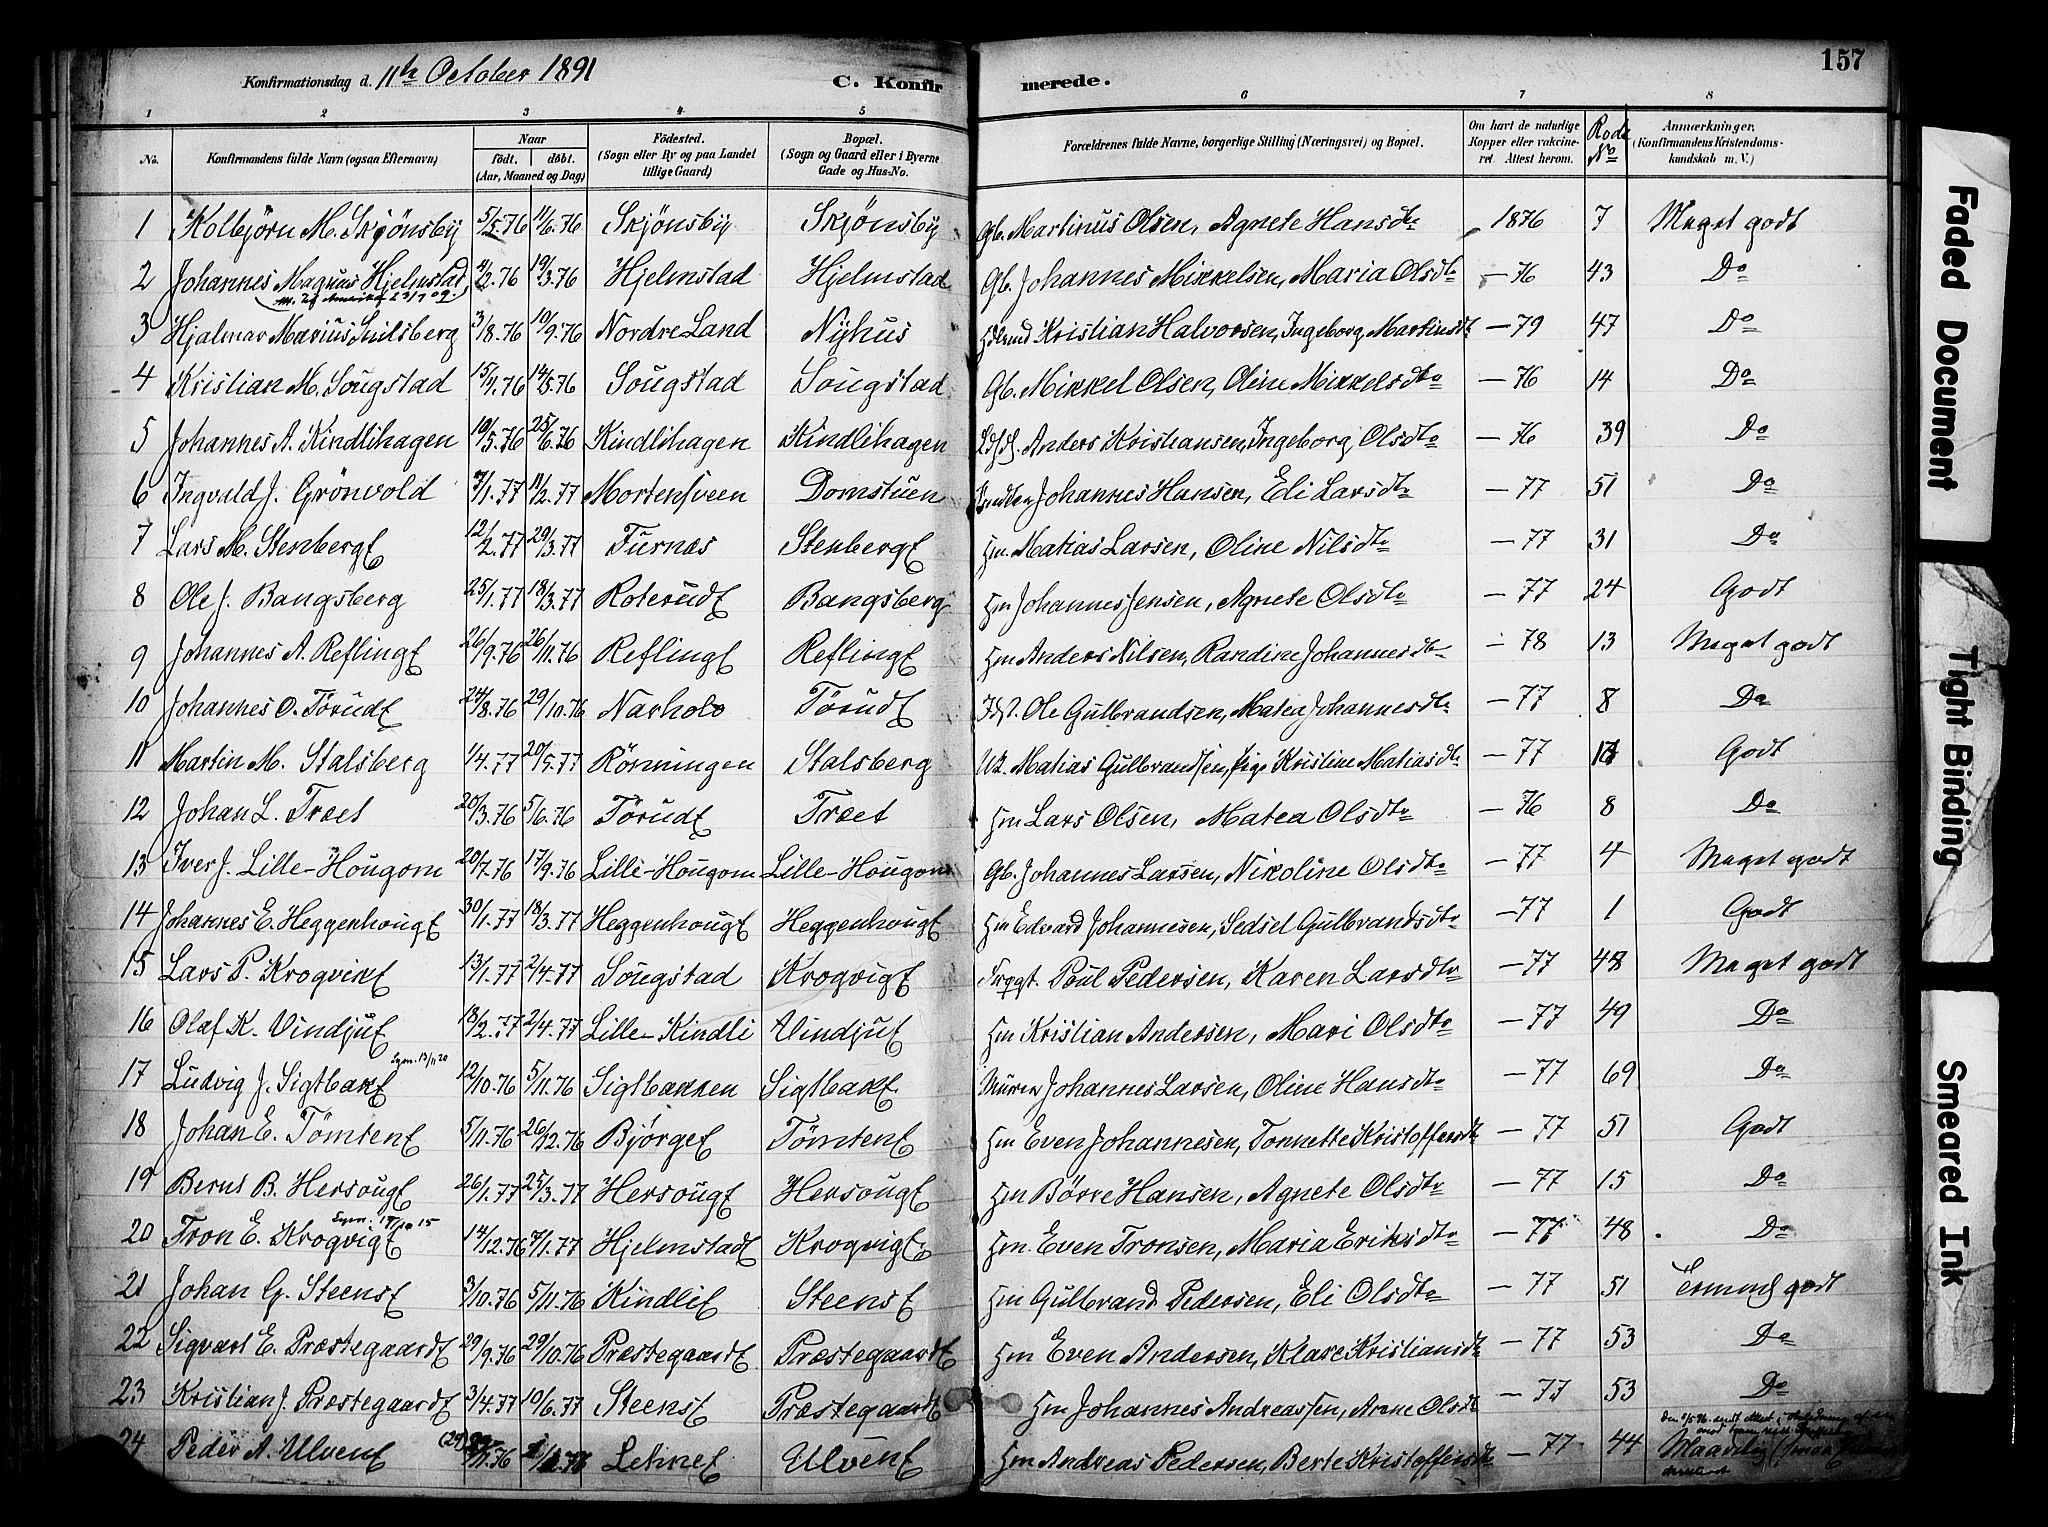 157
Konfirmationsdag d. 11te October 1891 C. Konfirmerede.
1 2 3 4 5 6 7 8
No. Konfirmandens fulde Navn (ogsaa Efternavn) Naar født. døbt. (Aar, Maaned og Dag) Födested. (Sogn eller By og paa Landet tillige Gaard) Bopæl. (Sogn og Gaard eller i Byerne Gade og Hus-No. Forældrenes fulde Navne, borgerlige Stilling (Næringsvei) og Bopæl. Om havt de naturlige Kopper eller vakcineret. Attest herom. Rode No Anmærkninger. (Konfirmandens Kristendomskundskab m. V.)
1 Kolbjörn M. Skjönsby 5/5.76 11/6.76 Skjönsby Skjönsby Gb. Martinus Olsen, Agnete Hansdtr 1876 7 Meget godt
2 Johannes Magnus Hjelmstad 4/2.76 19/3.76 Hjelmstad Hjelmstad Gb. Johannes Mikkelsen, Maria Olsdtr – 76 43 Do
(m. til Amerika 23/7 09.)
3 Hjalmar Marius 3/8.76 10/9.76 Nordre Land Nyhus Kristian Halvorsen, Ingeborg Martinsdt – 79 47 Do
4 Kristian M. Sougstad 15/4.76 14/5.76 Sougstad Sougstad Gb. Mikkel Olsen, Oline Mikkelsdtr – 76 14 Do
5 Johannes A. Kindlihagen 10/5.76 25/6.76 Kindlihagen Kindlihagen Anders Kristiansen, Ingeborg Olsdtr – 76 39 Do
6 Ingvald J. Grönvold 7/1.77 11/2.77 Mortensveen Domstuen Johannes Hansen, Eli Larsdtr – 77 51 Do
7 Lars M. Stenberge 12/2.77 29/3.77 Furnæs Stenberge Hm. Matias Larsen, Oline Nilsdtr – 77 31 Do
8 Ole J. Bangsberg 25/1.77 18/3.77 Roterude Bangsberg Hm Johannes Jensen, Agnete Olsdtr – 77 24 Godt
9 Johannes A. Reflinge 26/9.76 26/11.76 Reflinge Reflinge Hm Anders Nilsen, Randine Johannesdtr – 78 13 Meget godt
10 Johannes O. Törude 24/8.76 29/10.76 Narholo Törude Ole Gulbrandsen, Matea Johannesdtr – 77 8 Do
11 Martin M. Stalsberg 1/4.77 20/5.77 Rönningen Stalsberg Matias Gulbrandsen, Pige Kristine Matiasdtr – 77 Godt
12 Johan L. Træet 20/3.76 5/6.76 Törude Træet Hm Lars Olsen, Matea Olsdtr – 76 8 Do
13 Iver J. Lille-Hougom 20/7.76 17/9.76 Lille-Hougom Lille-Hougom Gb. Johannes Larsen, Nikoline Olsdtr – 77 4 Meget godt
14 Johannes E. Heggenhouge 30/1.77 18/3.77 Heggenhouge Heggenhouge Hm Edvard Johannesen, Sedsel Gulbrandsdtr – 77 1 Godt
15 Lars P. Krogvike 13/1.77 2/4.77 Sougstad Krogvige Poul Pedersen, Karen Larsdtr – 77 48 Meget godt
16 Olaf K. Vindjue 18/2.77 2/4.77 Lille-Kindli Vindjue Hm Kristian Andersen, Mari Olsdtr – 77 49 Do
17 Ludvig J. Sigtbake 12/10.76 5/11.76 Sigtbakken Sigtbake Murer Johannes Larsen, Oline Hansdtr – 77 69 Do
13/11 20
18 Johan E. Tömtene 5/11.76 26/12.76 Bjørge Tömtene Hm Even Johannesen, Tonnette Kristoffersdtr – 77 51 Godt
19 Bernt B. Hersouge 26/1.77 25/3.77 Hersouge Hersouge Hm Børre Hansen, Agnete Olsdtr – 77 15 Do
20 Tron E. Krogvige 14/12.76 7/1.77 Hjelmstad Krogvige Hm. Even Tronsen, Maria Eriksdtr – 77 48 Do
21 Johan G. Steense 3/10.76 5/11.76 Kindlie Steense Hm Gulbrand Pedersen, Eli Olsdtr – 77 51 Temmel godt
22 Sigvart E. Præstegaarde 29/9.76 29/10.76 Præstegaarde Præstegaarde Hm Even Andersen, Klare Kristiansdtr – 77 53 Do
23 Kristian J. Præstegaarde 3/4.77 10/6.77 Steense Præstegaarde Hm Johannes Andreassen, Arene Olsdt – 77 53 Do
24 Peder A. Ulvene Lehne Ulvene Hm Andreas Pedersen, Berte Kristoffersdtr – 77 44 Maadelig
Faded Document
Tight Binding
Smeared Ink